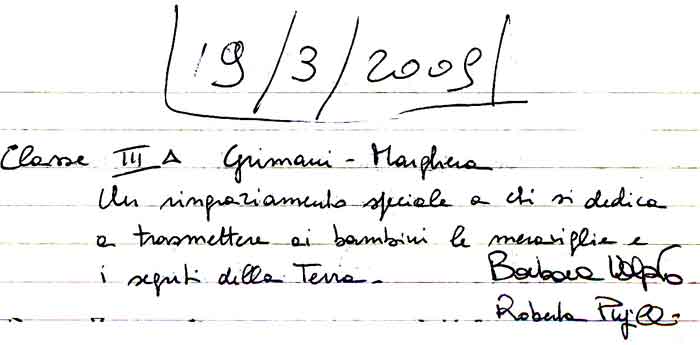 19/3/2009
Classe III A Grimani - Marghera
Un ringraziamento speciale a chi si dedica
a trasmettere ai bambini le meraviglie e
i segreti della Terra. Barbara
Roberta